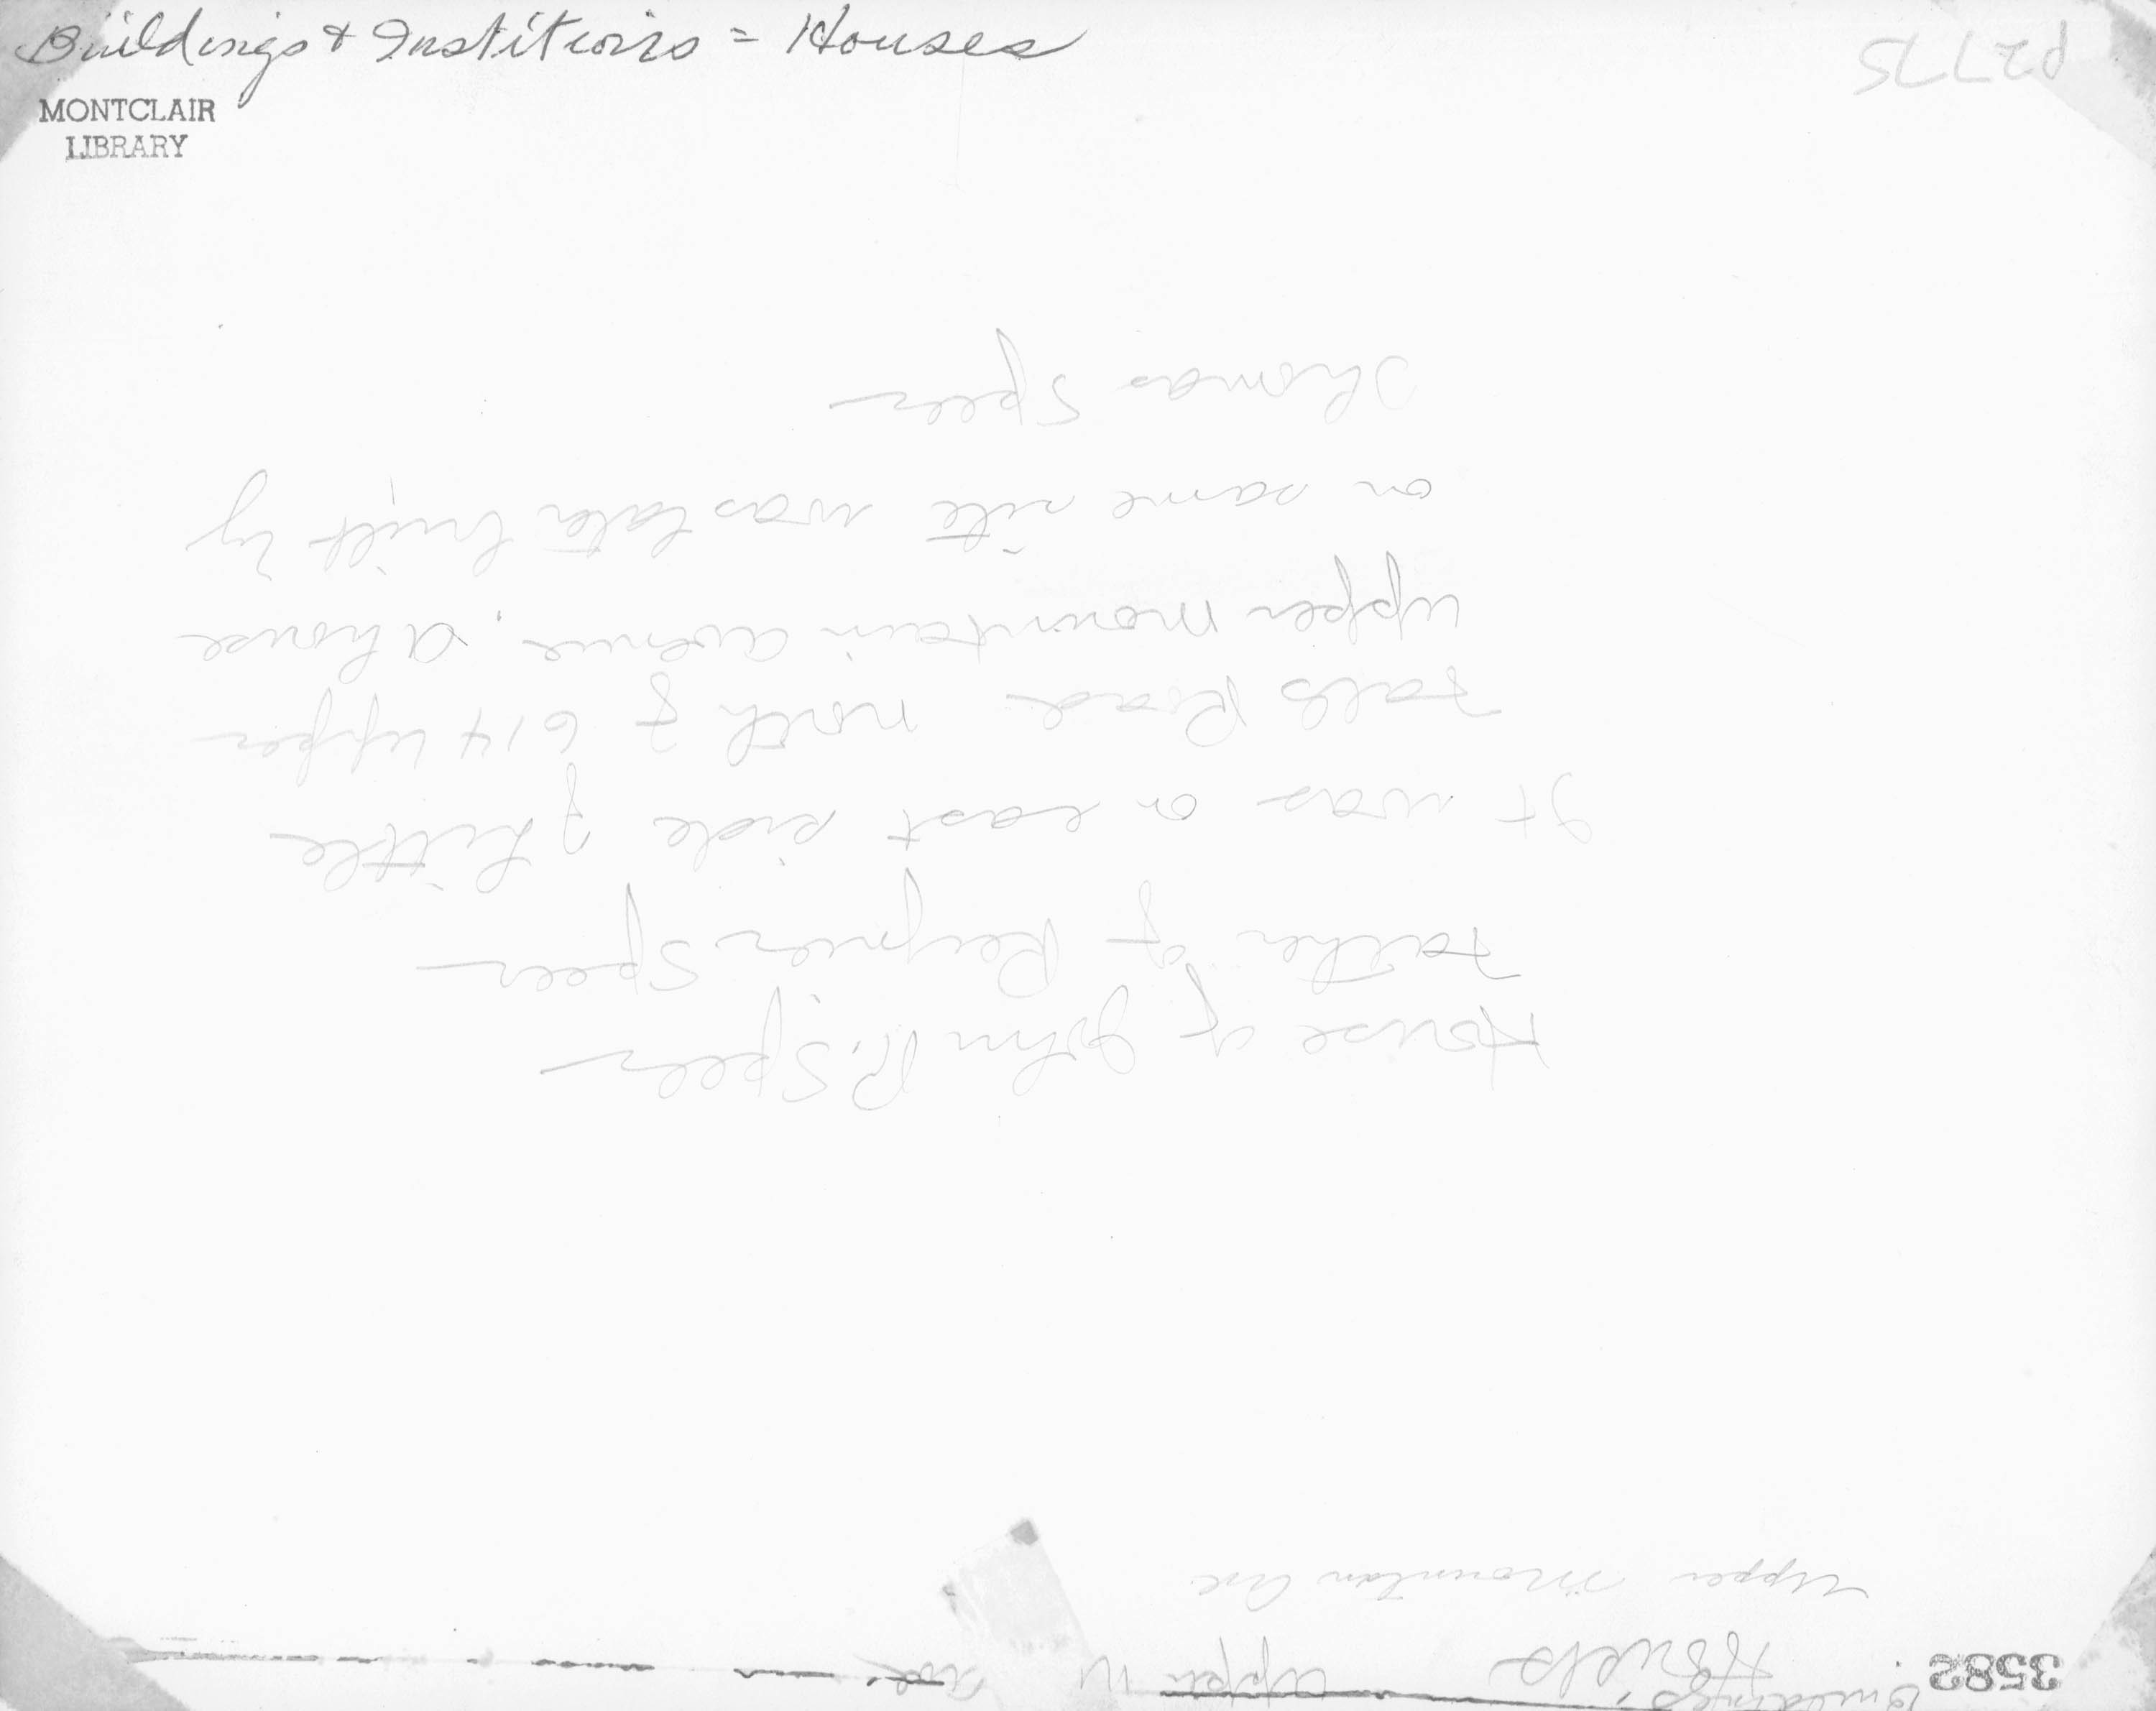 Buildings & Institutions = Houses
MONTCLAIR
LIBRARY
P2775
House of John R. Speer
Father of Reynier Speer
It was on east side of Little
Falls Road north of 614 Upper
Upper Mountain Avenue. A house
on same site was later built by
Thomas Speer
3582
Buildings
Upper Mountain Ave.